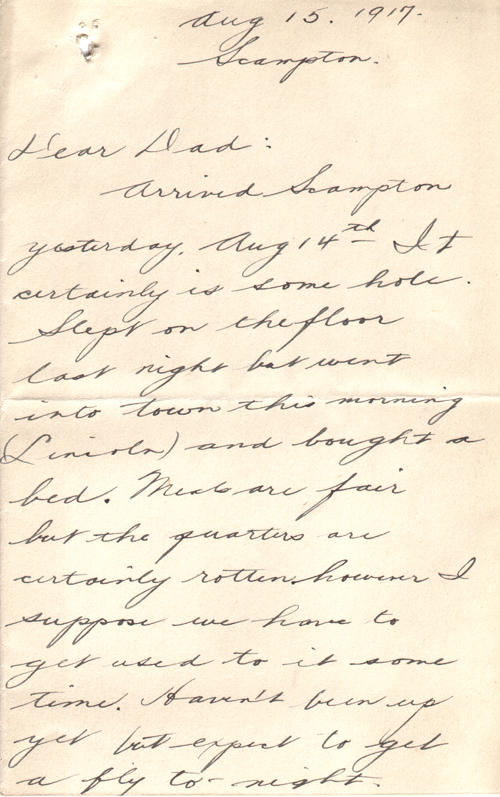 Aug 15. 1917.
Scampton.
Dear Dad:
Arrived Scampton
yesterday. Aug 14th It
certainly is some hole.
Slept on the floor
last night but went
into town this morning
(Lincoln) and bought a
bed. Meals are fair
but the quarters are
certainly rotten. however I
suppose we have to
get used to it some
time. Haven't been up
yet but expect to get
a fly to-night.